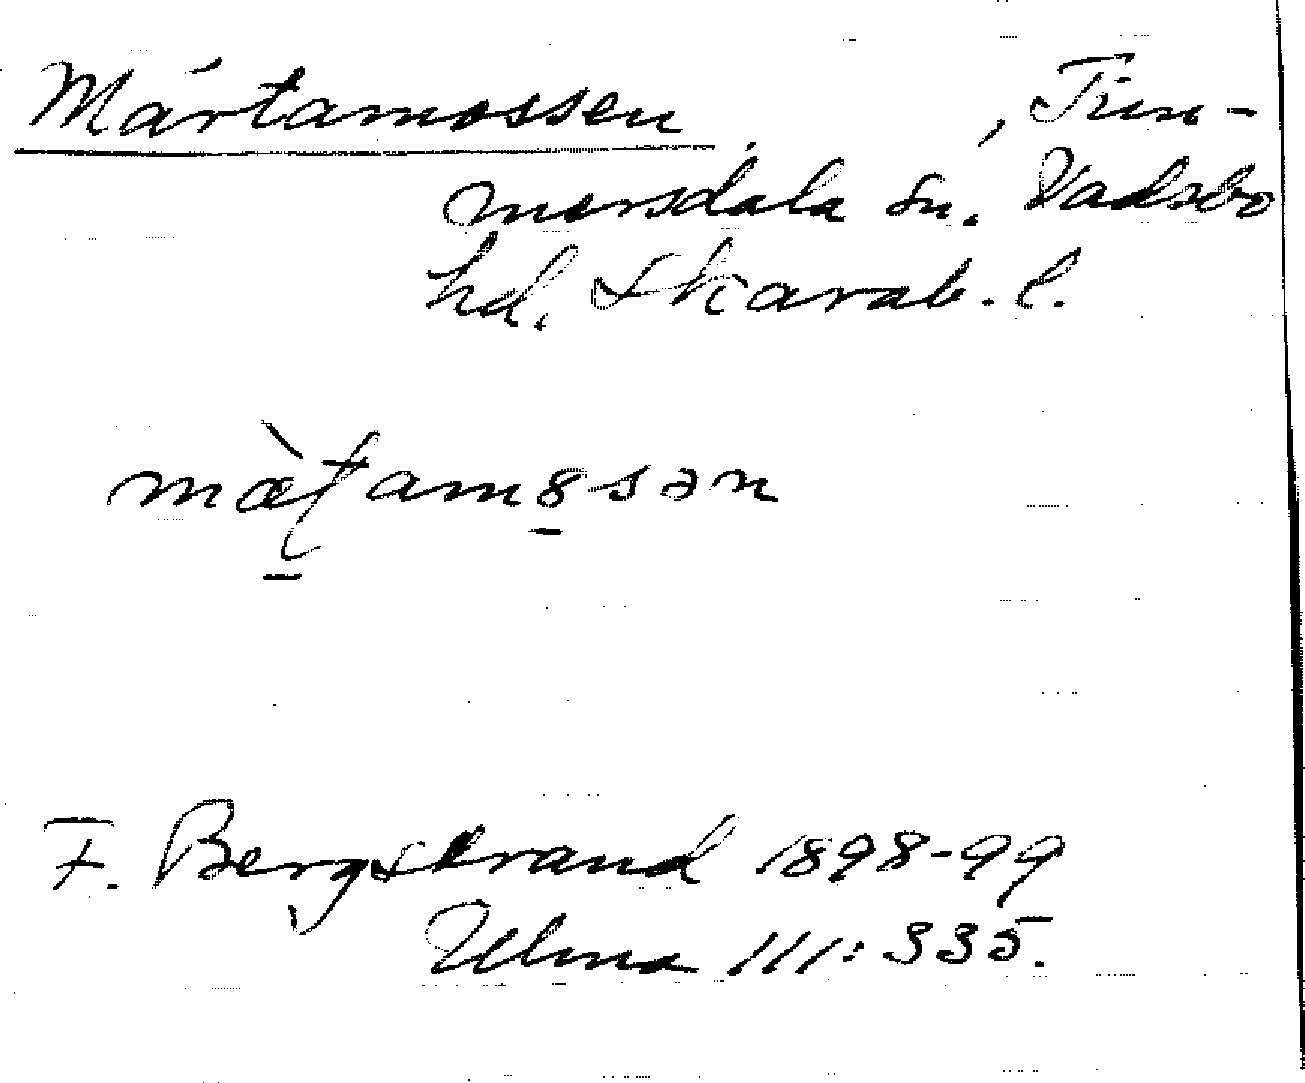 Mártamossen , Tim-
mersdala sn. Vadsbo
hd. Skarab. l.
mæ̀tamȣsən
F. Bergstrand 1898-99
Ulma 111:335.